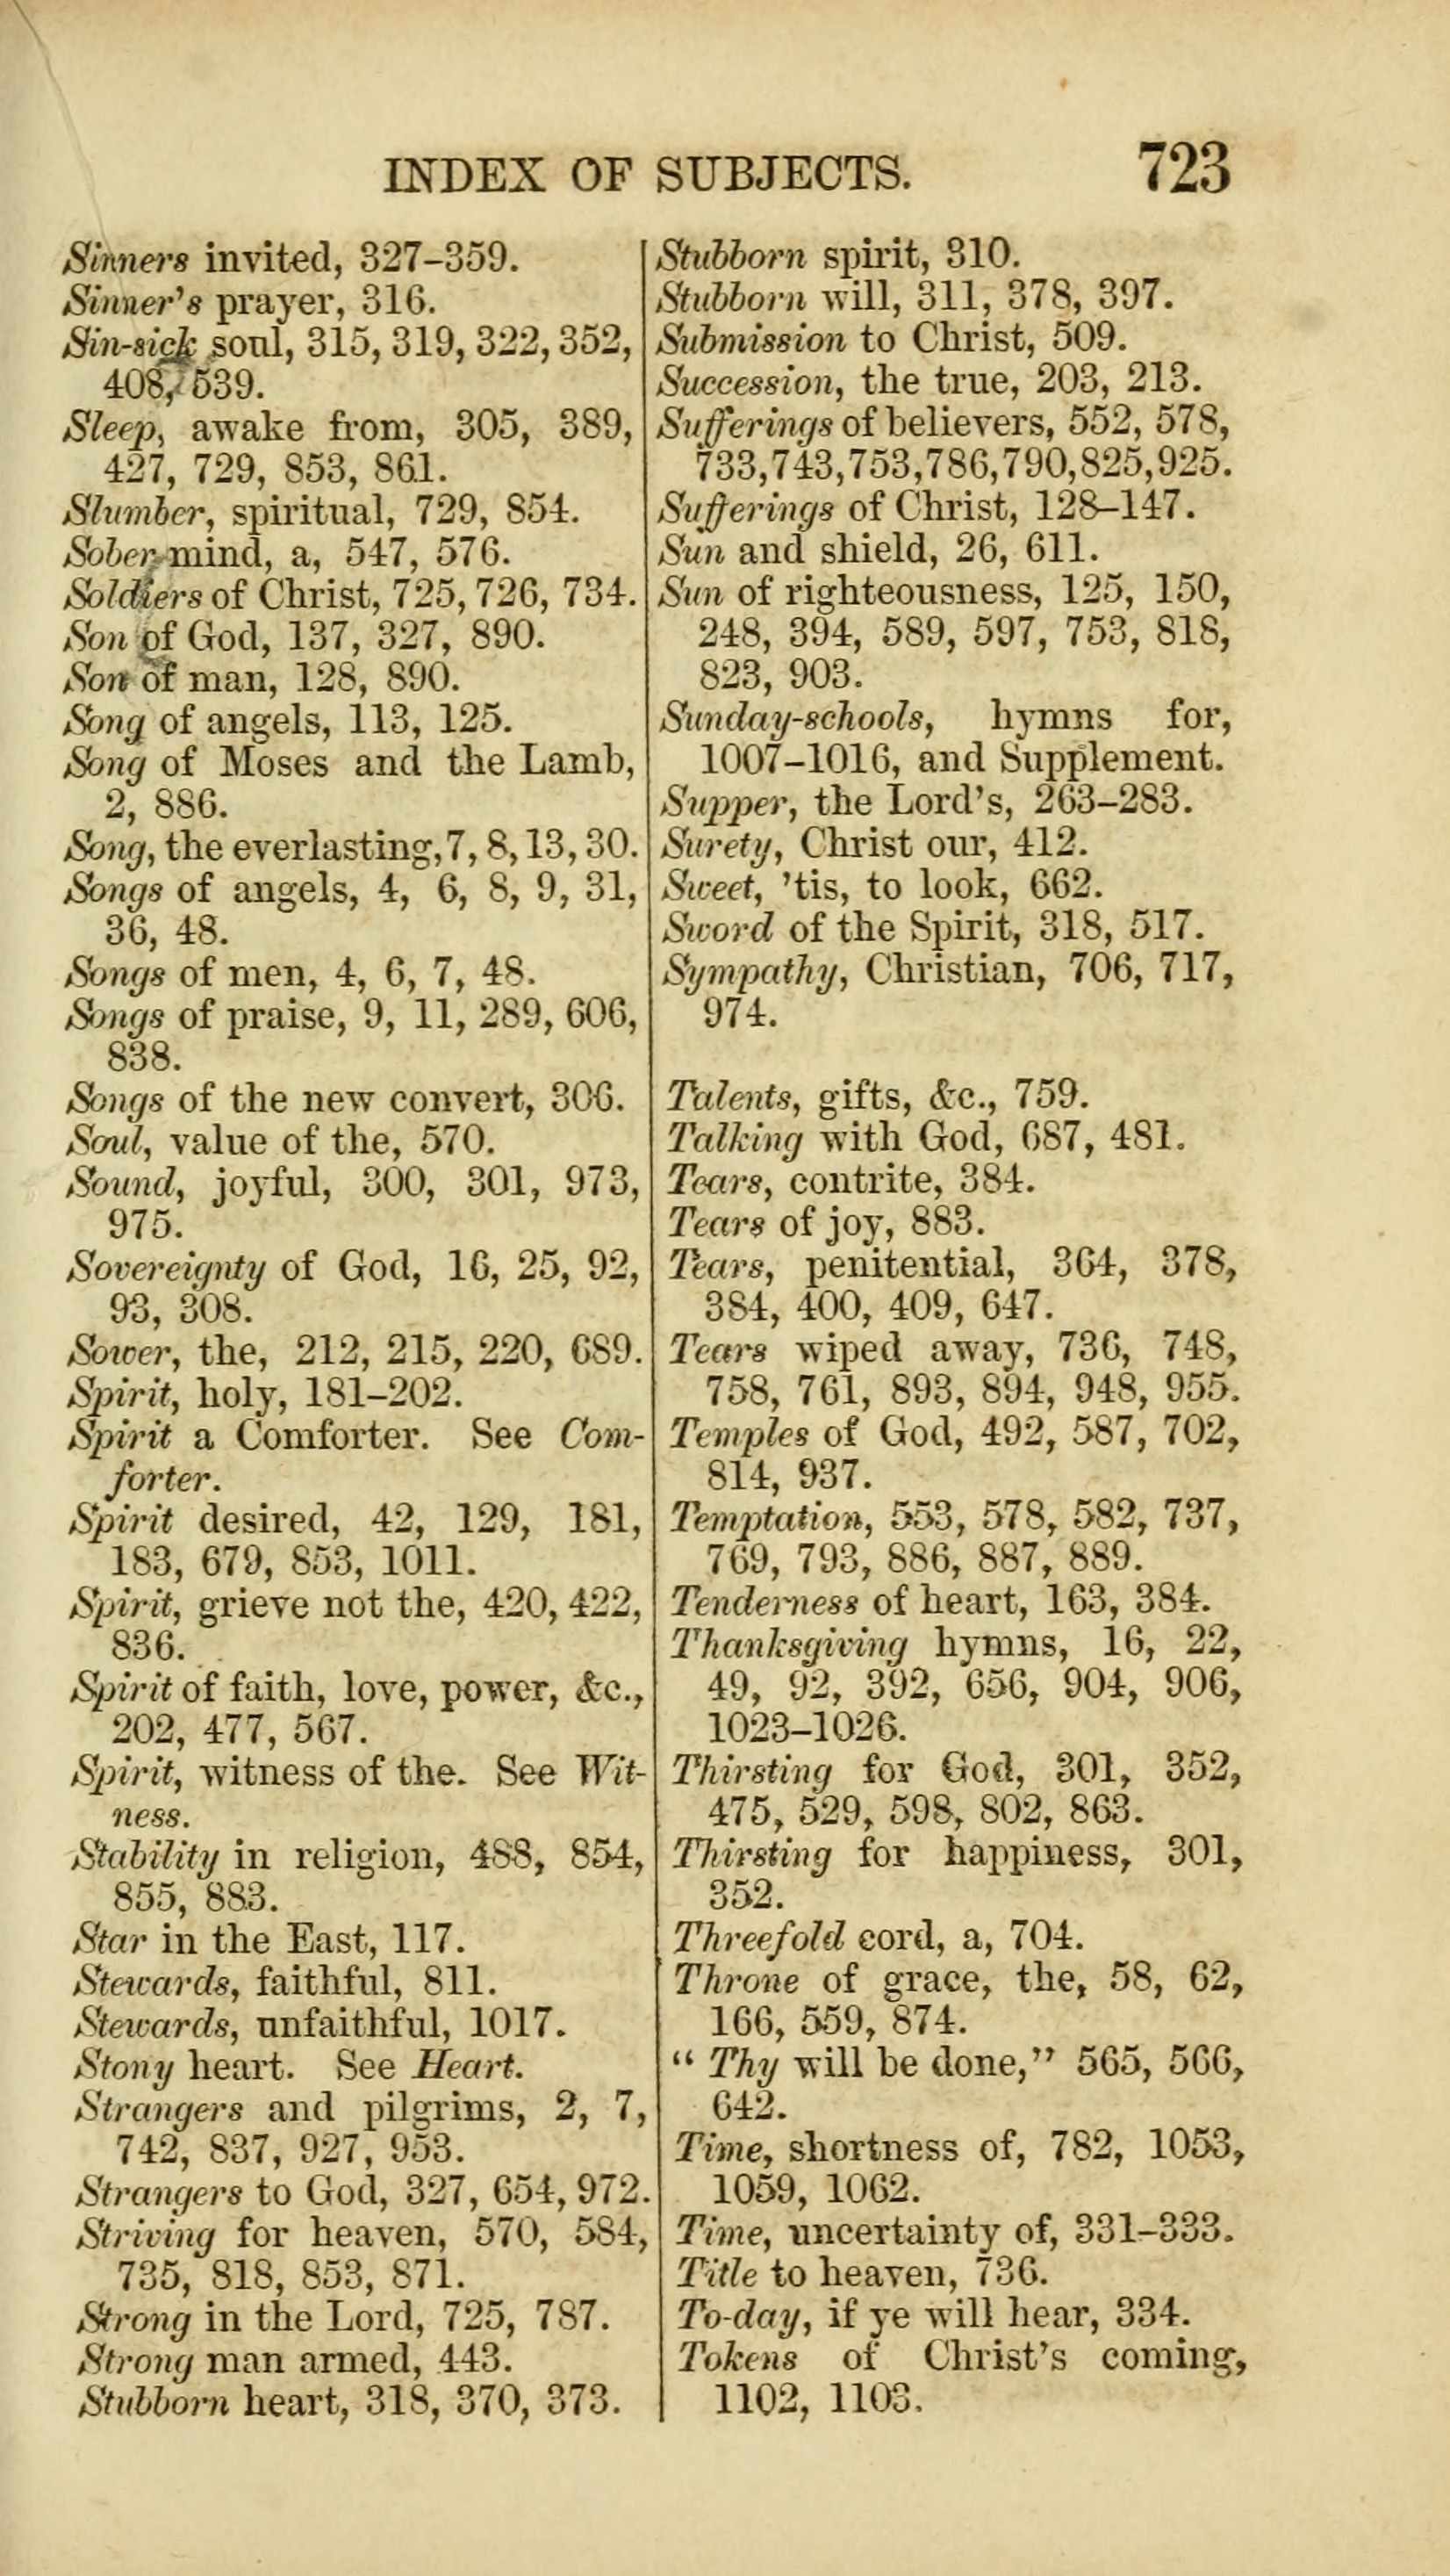 INDEX OF SUBJECTS. 723
Sinners invited, 327–359.
Sinner's prayer, 316.
Sin-sick soul, 315, 319, 322, 352,
408, 539.
Sleep, awake from, 305, 389,
427, 729, 853, 861.
Slumber, spiritual, 729, 854.
Sober mind, a, 547, 576.
Soldiers of Christ, 725, 726, 734.
Son of God, 137, 327, 890.
Son of man, 128, 890.
Song of angels, 113, 125.
Song of Moses and the Lamb,
2, 886.
Song, the everlasting, 7, 8, 13, 30.
Songs of angels, 4, 6, 8, 9, 31,
36, 48.
Songs of men, 4, 6, 7, 48.
Songs of praise, 9, 11, 289, 606,
838.
Songs of the new convert, 306.
Soul, value of the, 570.
Sound, joyful, 300, 301, 973,
975.
Sovereignty of God, 16, 25, 92,
93, 308.
Sower, the, 212, 215, 220, 689.
Spirit, holy, 181–202.
Spirit a Comforter. See Com-
forter.
Spirit desired, 42, 129, 181,
183, 679, 853, 1011.
Spirit, grieve not the, 420, 422,
836.
Spirit of faith, love, power, &c.,
202, 477, 567.
Spirit, witness of the. See Wit-
ness.
Stability in religion, 488, 854,
855, 883.
Star in the East, 117.
Stewards, faithful, 811.
Stewards, unfaithful, 1017.
Stony heart. See Heart.
Strangers and pilgrims, 2, 7,
742, 837, 927, 953.
Strangers to God, 327, 654, 972.
Striving for heaven, 570, 584,
735, 818, 853, 871.
Strong in the Lord, 725, 787.
Strong man armed, 443.
Stubborn heart, 318, 370, 373.
Stubborn spirit, 310.
Stubborn will, 311, 378, 397.
Submission to Christ, 509.
Succession, the true, 203, 213.
Sufferings of believers, 552, 578,
733, 743, 753, 786, 790, 825, 925.
Sufferings of Christ, 128–147.
Sun and shield, 26, 611.
Sun of righteousness, 125, 150,
248, 394, 589, 597, 753, 818,
823, 903.
Sunday-schools, hymns for,
1007–1016, and Supplement.
Supper, the Lord's, 263–283.
Surety, Christ our, 412.
Sweet, 'tis, to look, 662.
Sword of the Spirit, 318, 517.
Sympathy, Christian, 706, 717,
974.
Talents, gifts, &c., 759.
Talking with God, 687, 481.
Tears, contrite, 384.
Tears of joy, 883.
Tears, penitential, 364, 378,
384, 400, 409, 647.
Tears wiped away, 736, 748,
758, 761, 893, 894, 948, 955.
Temples of God, 492, 587, 702,
814, 937.
Temptation, 553, 578, 582, 737,
769, 793, 886, 887, 889.
Tenderness of heart, 163, 384.
Thanksgiving hymns, 16, 22,
49, 92, 392, 656, 904, 906,
1023–1026.
Thirsting for God, 301, 352,
475, 529, 598, 802, 863.
Thirsting for happiness, 301,
352.
Threefold cord, a, 704.
Throne of grace, the, 58, 62,
166, 559, 874.
" Thy will be done," 565, 566,
642.
Time, shortness of, 782, 1053,
1059, 1062.
Time, uncertainty of, 331–333.
Title to heaven, 736.
To-day, if ye will hear, 334.
Tokens of Christ's coming,
1102, 1103.